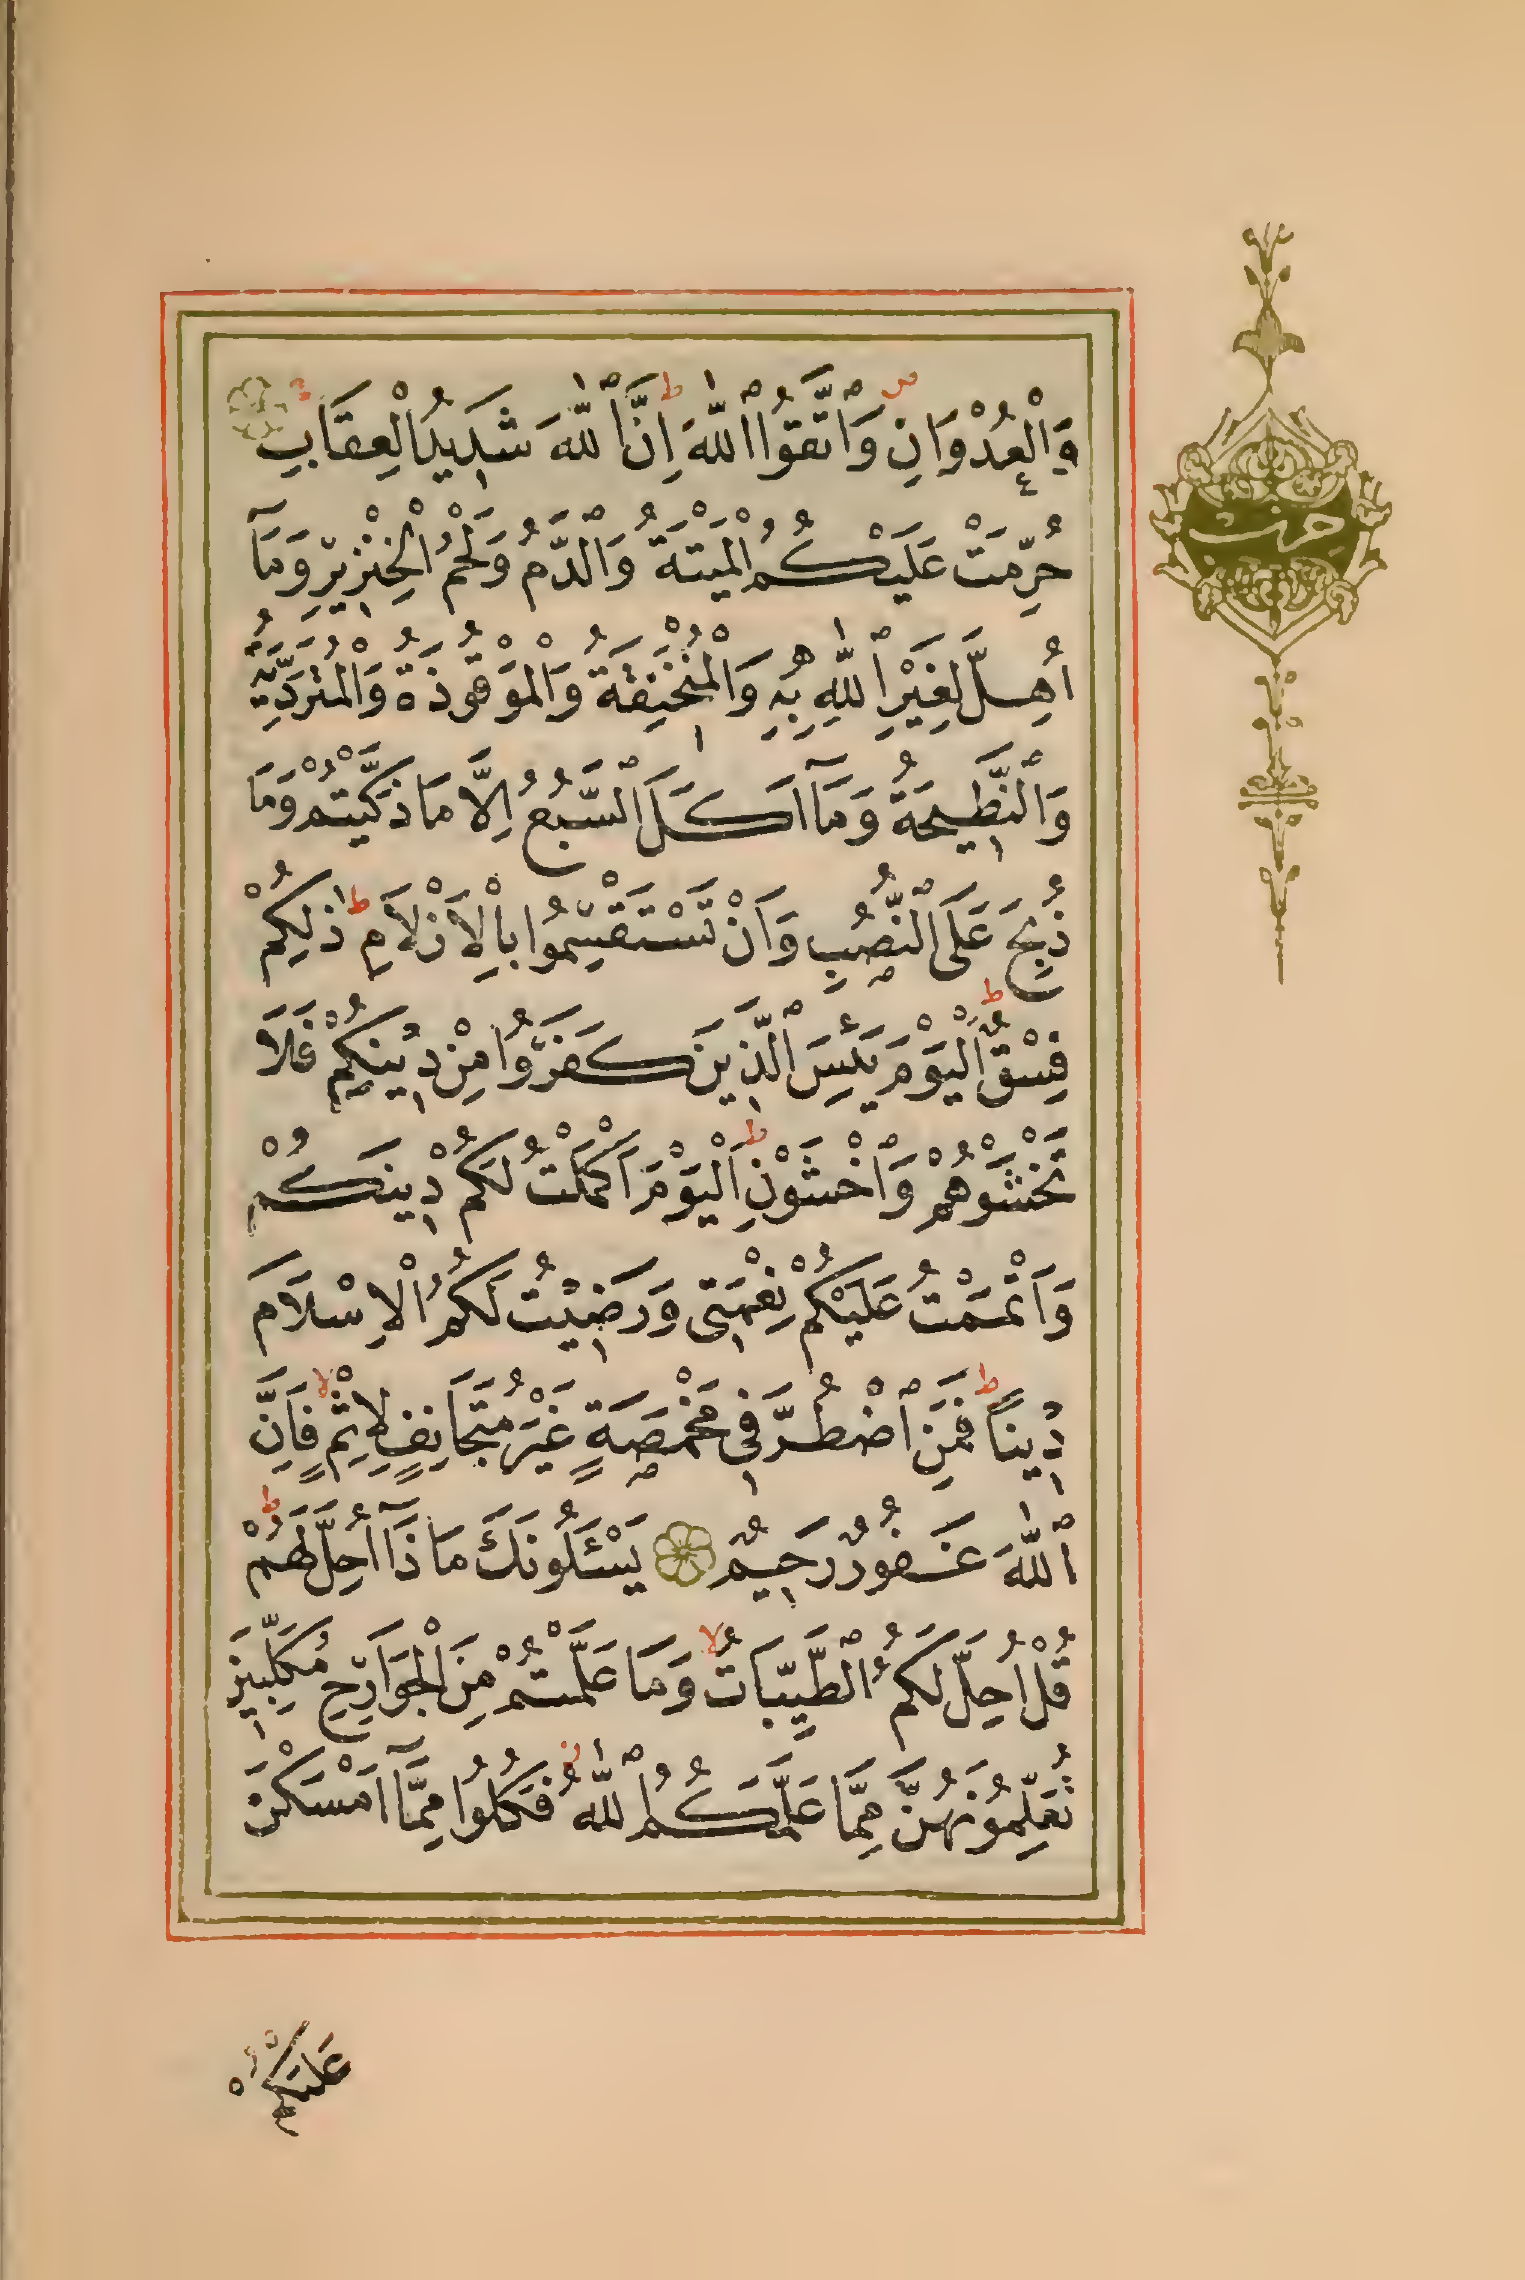 وَالْعُدْوَانِ ص وَاتَّقُوا اللّٰهَ ط اِنَّ اللّٰهَ شَدِيدُ الْعِقَابِ
حُرِّمَتْ عَلَيْكُمُ الْمَيْتَةُ وَالدَّمُ وَلَحْمُ الْخِنْزِيرِ وَمَآ
اُهِلَّ لِغَيْرِ اللّٰهِ بِهِ وَالْمُنْخَنِقَةُ وَالْمَوْقُوذَةُ وَالْمُتَرَدِّيَةُ
وَالنَّطِيحَةُ وَمَآ اَكَلَ السَّبُعُ اِلَّا مَا ذَكَّيْتُمْ وَمَا
ذُبِحَ عَلَى النُّصُبِ وَاَنْ تَسْتَقْسِمُوا بِالْاَزْلَامِ ط ذٰلِكُمْ
فِسْقٌ ط اَلْيَوْمَ يَئِسَ الَّذِينَ كَفَرُوا مِنْ دِينِكُمْ فَلَا
تَخْشَوْهُمْ وَاخْشَوْنِ ط اَلْيَوْمَ اَكْمَلْتُ لَكُمْ دِينَكُمْ
وَاَتْمَمْتُ عَلَيْكُمْ نِعْمَتِى وَرَضِيتُ لَكُمُ الْاِسْلَامَ
دِينًا ط فَمَنِ اضْطُرَّ فِى مَخْمَصَةٍ غَيْرَ مُتَجَانِفٍ لِاِثْمٍ لا فَاِنَّ
اللّٰهَ غَفُورٌ رَحِيمٌ يَسْـَٔلُونَكَ مَاذَآ اُحِلَّ لَهُمْ ط
قُلْ اُحِلَّ لَكُمُ الطَّيِّبَاتُ لا وَمَا عَلَّمْتُمْ مِنَ الْجَوَارِحِ مُكَلِّبِينَ
تُعَلِّمُونَهُنَّ مِمَّا عَلَّمَكُمُ اللّٰهُ ز فَكُلُوا مِمَّآ اَمْسَكْنَ
عَلَيْكُمْ
حزب